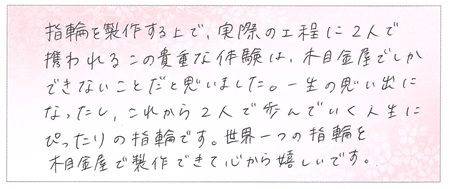 指輪を製作する上で、実際の工程に2人で
携われるこの貴重な体験は、木目金屋でしか
できないことだと思いました。一生の思い出に
なったし、これから2人で歩んでいく人生に
ぴったりの指輪です。世界一つの指輪を
木目金屋で製作できて心から嬉しいです。